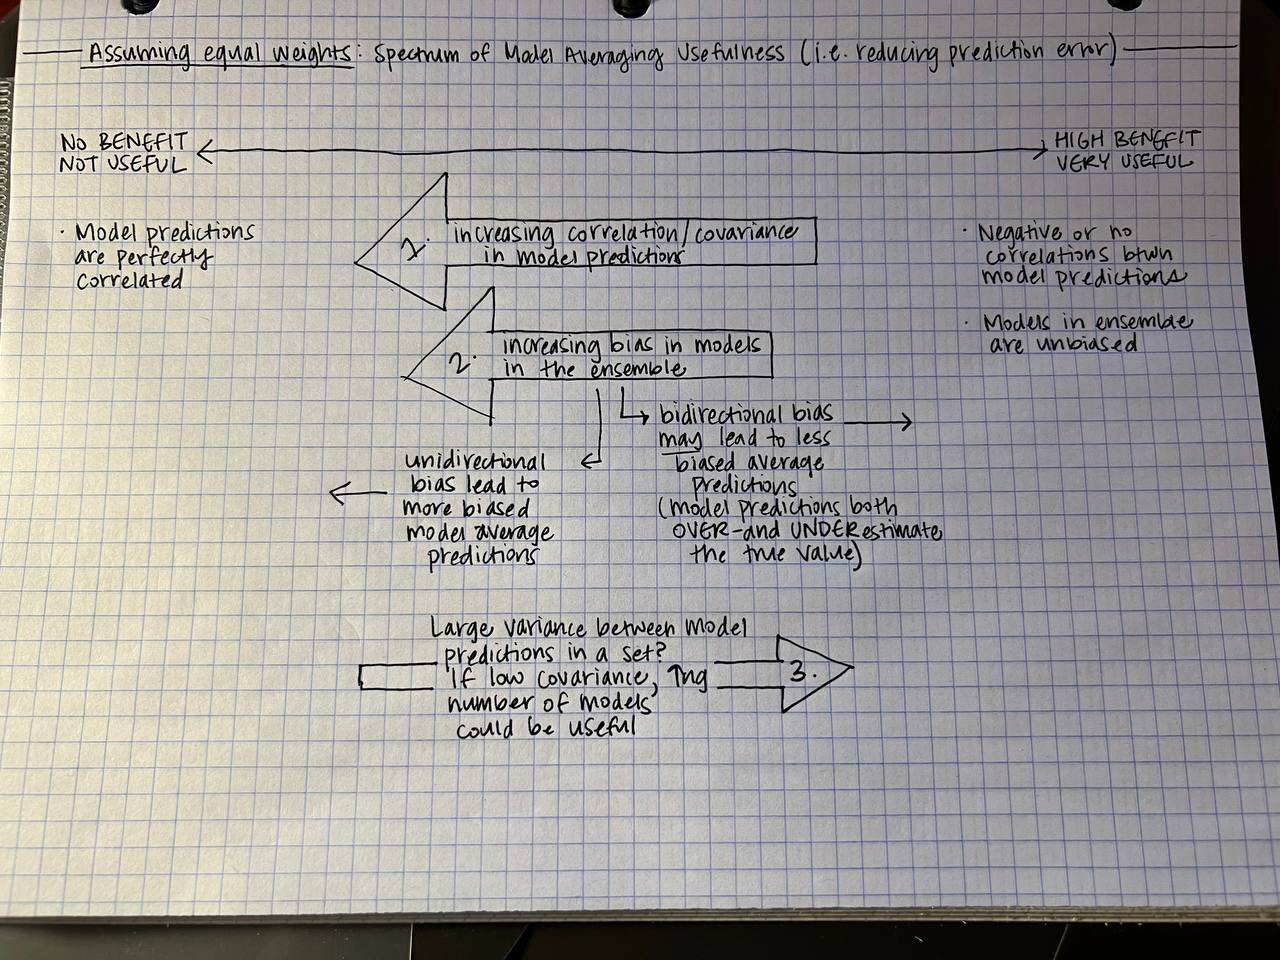 Assuming equal weights: Spectrum of Model Averaging Usefulness (i.e. reducing prediction error)
NO BENEFIT
NOT USEFUL
HIGH BENEFIT
VERY USEFUL
· Model predictions
are perfectly
correlated
1. increasing correlation/covariance
in model predictions
· Negative or no
correlations btwn
model predictions
· Models in ensemble
are unbiased
2. increasing bias in models
in the ensemble
unidirectional
bias lead to
more biased
model average
predictions
bidirectional bias
may lead to less
biased average
predictions
(model predictions both
OVER-and UNDERestimate
the true value)
Large variance between model
predictions in a set?
If low covariance, ↑ng
number of models
could be useful
3.